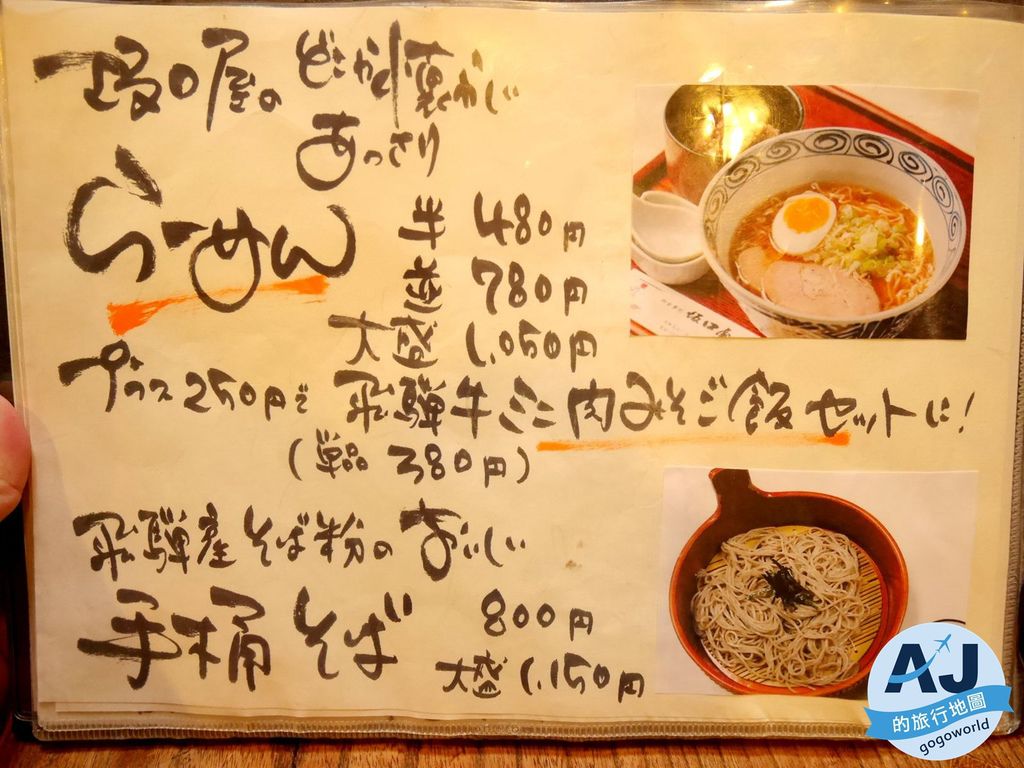 坂口屋の どこか懐かしい
あっさり
らーめん
半 480円
並 780円
大盛 1,050円
プラス250円で 飛騨牛ミニ肉みそご飯セットに!
(単品 380円)
飛騨産そば粉のおいしい
手桶そば
800円
大盛 1,150円
坂口屋
AJ
的旅行地圖
gogoworld